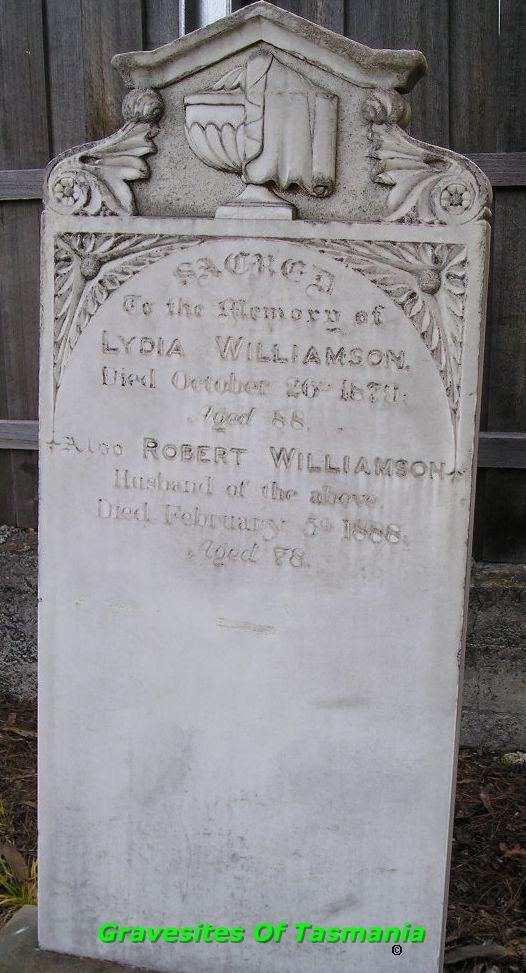 SACRED
To the Memory of
LYDIA WILLIAMSON.
Died October 26th 1879.
Aged 88.
Also ROBERT WILLIAMSON
Husband of the above.
Died February 5th 1888.
Aged 78.
Gravesites Of Tasmania
©